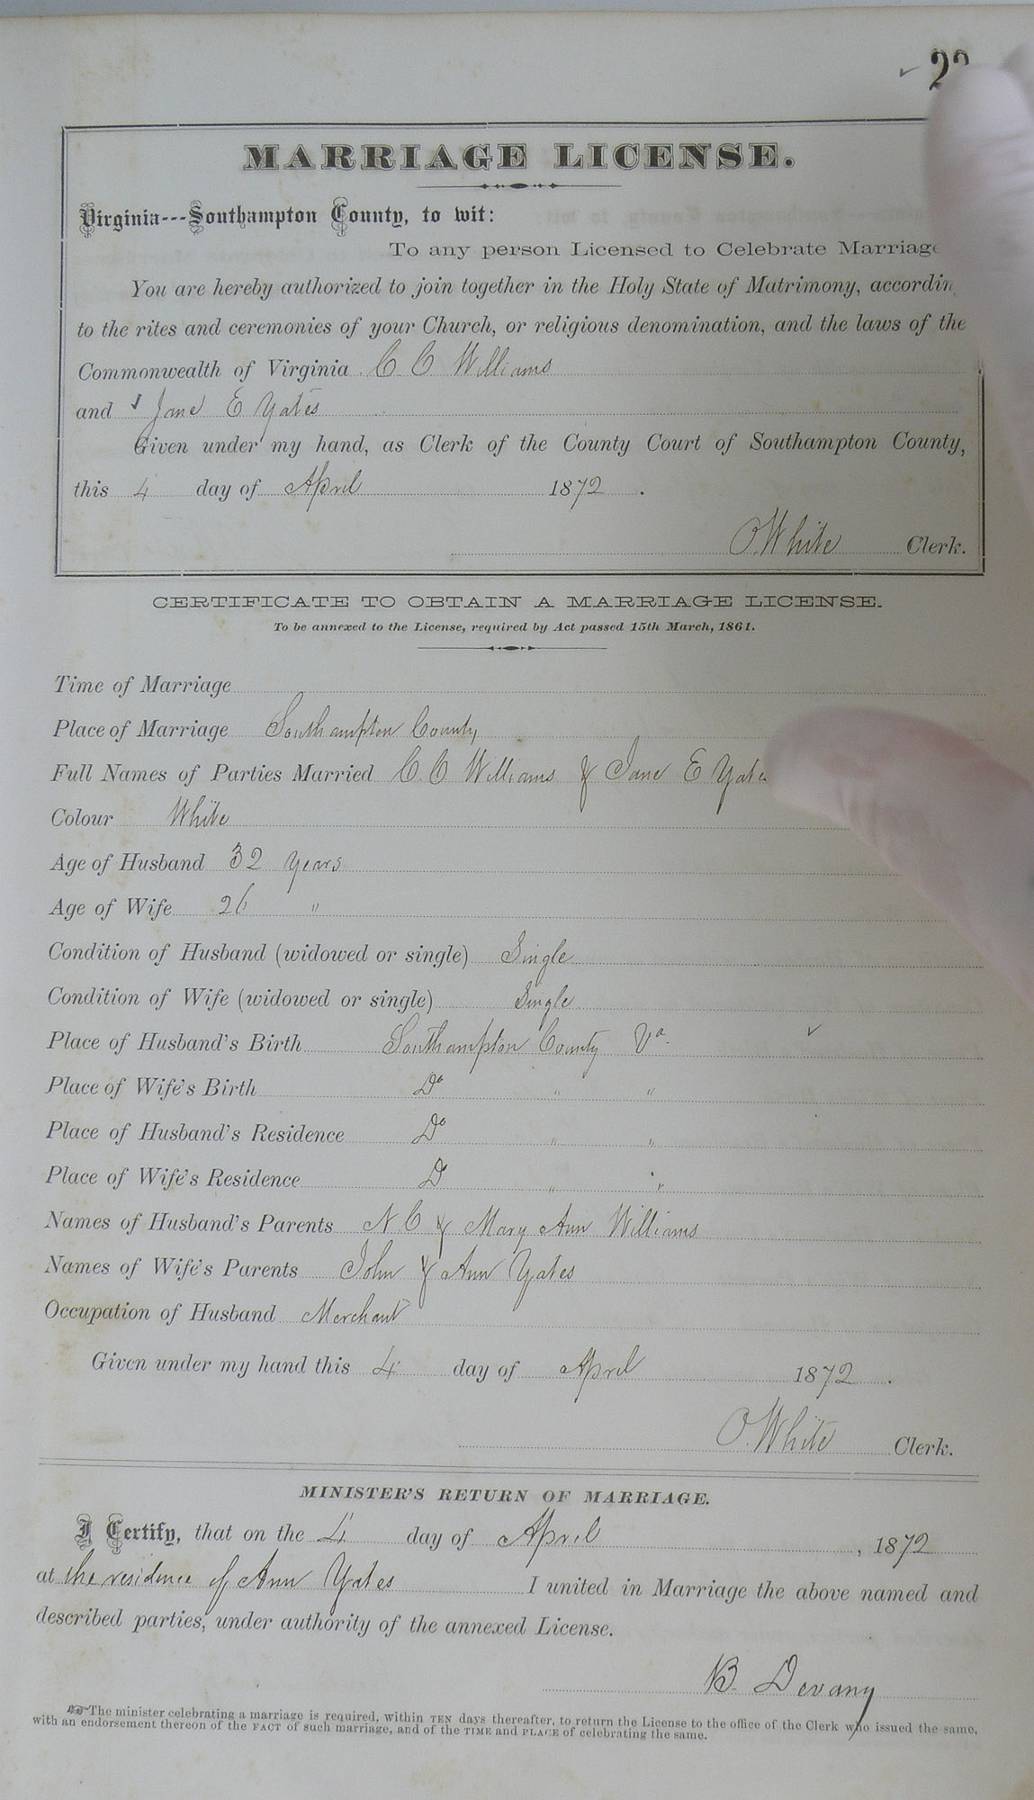 MARRIAGE LICENSE.
Virginia---Southampton County, to wit:
To any person Licensed to Celebrate Marriage
You are hereby authorized to join together in the Holy State of Matrimony, accordin
to the rites and ceremonies of your Church, or religious denomination, and the laws of the
Commonwealth of Virginia C. C Williams
and Jane E Yates
Given under my hand, as Clerk of the County Court of Southampton County,
this 4 day of April 1872.
O. White Clerk.
CERTIFICATE TO OBTAIN A MARRIAGE LICENSE.
To be annexed to the License, required by Act passed 15th March, 1861.
Time of Marriage
Place of Marriage Southampton County
Full Names of Parties Married C. C Williams & Jane E Yates
Colour White
Age of Husband 32 Years
Age of Wife 26 "
Condition of Husband (widowed or single) Single
Condition of Wife (widowed or single) Single
Place of Husband's Birth Southampton County Va.
Place of Wife's Birth Do " "
Place of Husband's Residence Do " "
Place of Wife's Residence D " "
Names of Husband's Parents N C & Mary Ann Williams
Names of Wife's Parents John & Ann Yates
Occupation of Husband Merchant
Given under my hand this 4 day of April 1872.
O. White Clerk.
MINISTER'S RETURN OF MARRIAGE.
I Certify, that on the 4 day of April, 1872
at the residence of Ann Yates I united in Marriage the above named and
described parties, under authority of the annexed License.
B. Devany
The minister celebrating a marriage is required, within TEN days thereafter, to return the License to the office of the Clerk who issued the same,
with an endorsement thereon of the FACT of such marriage, and of the TIME and PLACE of celebrating the same.